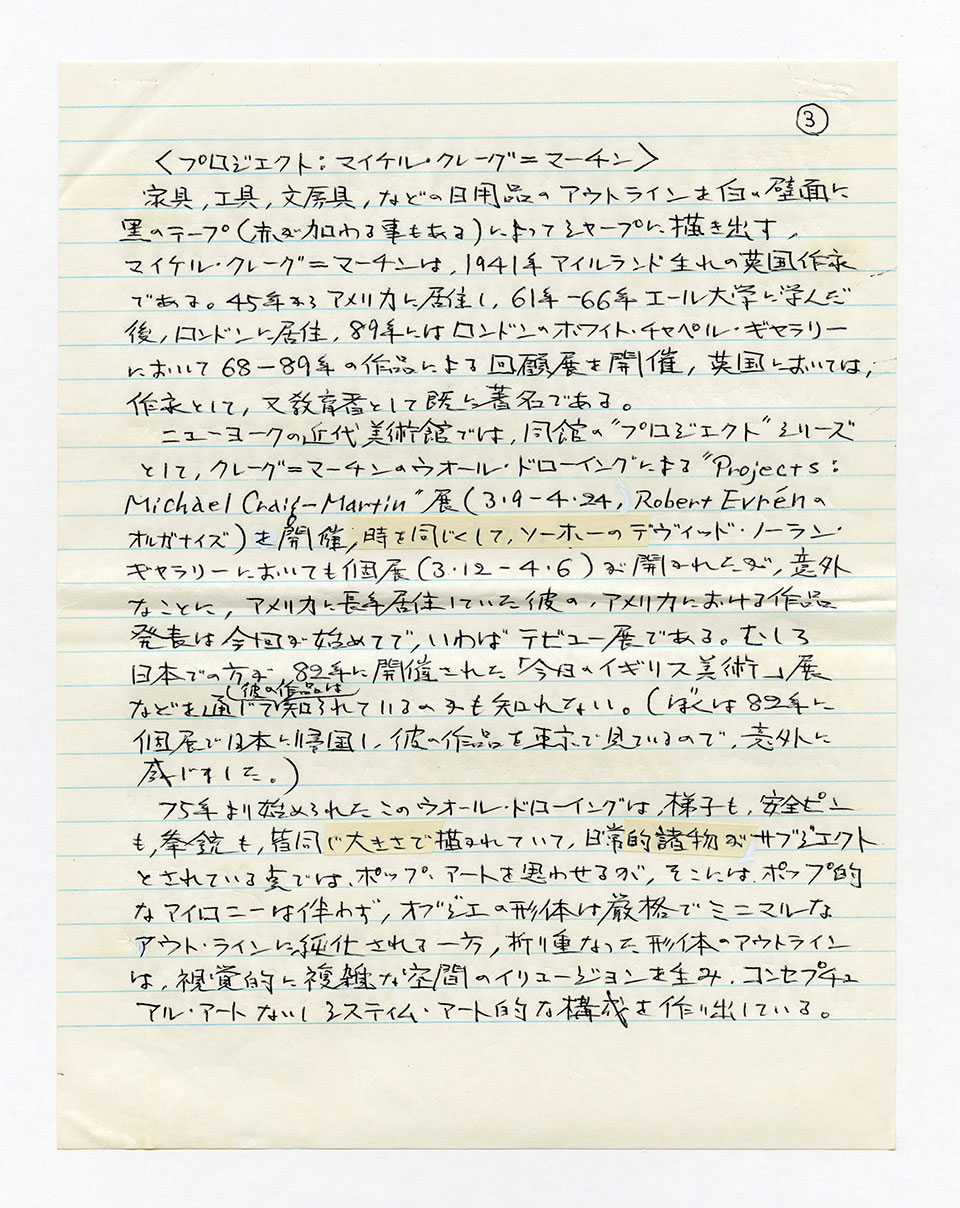 ③
〈プロジェクト：マイケル・クレーグ＝マーチン〉
家具，工具，文房具，などの日用品のアウトラインを白い壁面に
黒のテープ(赤が加わる事もある)によってシャープに描き出す，
マイケル・クレーグ＝マーチンは，1941年アイルランド生れの英国作家
である。45年からアメリカに居住し，61年−66年エール大学に学んだ
後，ロンドンに居住，89年にはロンドンのホワイト・チャペル・ギャラリー
において68−89年の作品による回顧展を開催，英国においては，
作家として，又教育者として既に著名である。
ニューヨークの近代美術館では，同館の"プロジェクト"シリーズ
として，クレーグ＝マーチンのウオール・ドローイングによる"Projects：
Michael Craig−Martin"展(3・9−4・24，Robert Evrénの
オルガナイズ)を開催，時を同じくして，ソーホーのデヴィッド・ノーラン・
ギャラリーにおいても個展(3・12−4・6)が開かれたが，意外
なことに，アメリカに長年居住していた彼の，アメリカにおける作品
発表は今回が始めてで，いわばデビュー展である。むしろ
日本での方が，82年に開催された「今日のイギリス美術」展
などを通じて彼の作品は知られているのかも知れない。(ぼくは82年に
個展で日本に帰国し，彼の作品を東京で見ているので，意外に
感じました。)
75年より始められたこのウオール・ドローイングは，梯子も，安全ピン
も，拳銃も，皆同じ大きさで描かれていて，日常的諸物がサブジェクト
とされている点では、ポップ・アートを思わせるが，そこには，ポップ的
なアイロニーは伴わず，オブジェの形体は厳格でミニマルな
アウト・ラインに純化される一方，折り重なった形体のアウトライン
は，視覚的に複雑な空間のイリュージョンを生み，コンセプチュ
アル・アートないしシスティム・アート的な構成を作り出している。